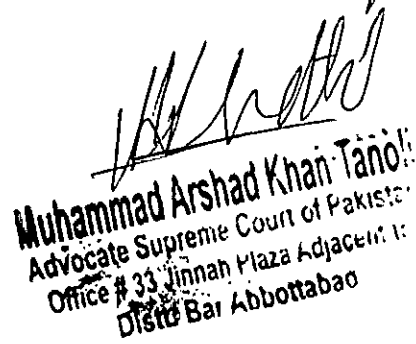 Muhammad Arshad Khan Tanoli
Advocate Supreme Court of Pakistan
Office # 33 Jinnah Plaza Adjacent to
Distt Bar Abbottabad